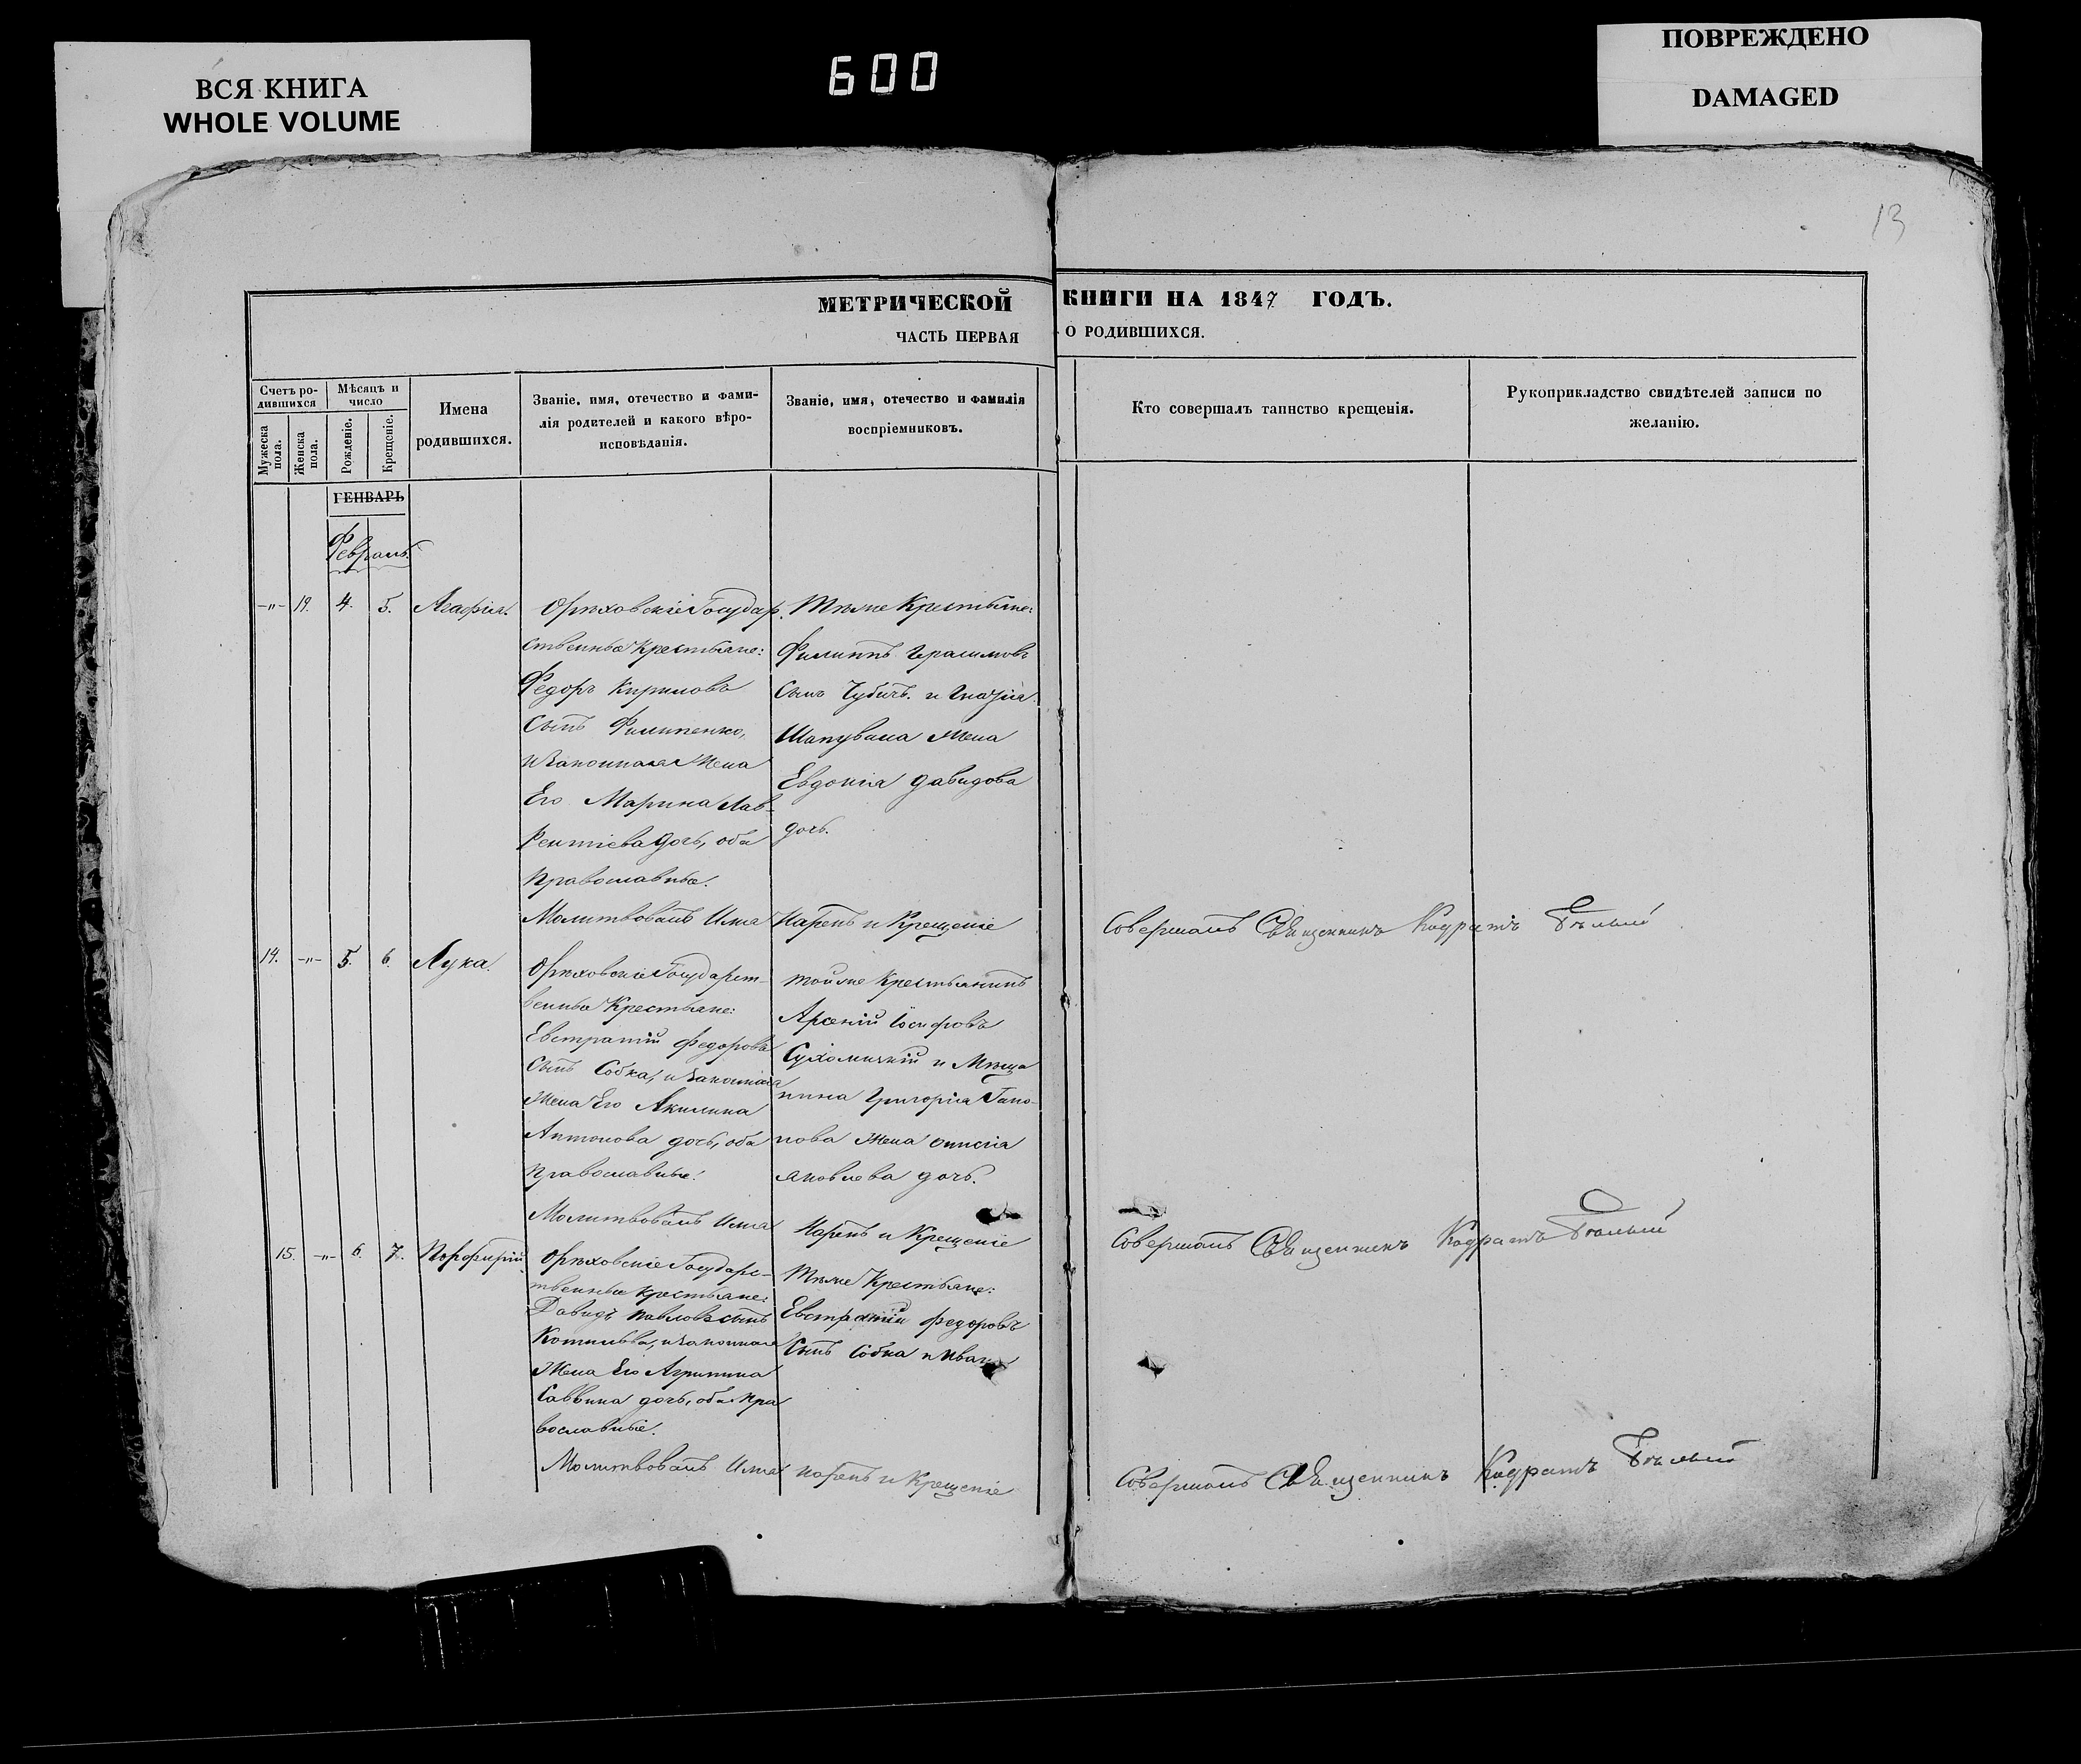 ВСЯ КНИГА
WHOLE VOLUME
600
ПОВРЕЖДЕНО
DAMAGED
13
МЕТРИЧЕСКОЙ КНИГИ НА 1847 ГОДЪ.
ЧАСТЬ ПЕРВАЯ О РОДИВШИХСЯ.
Счетъ ро-
дившихся
Мужеска
пола.
Женска
пола.
Мѣсяцъ и
число
Рожденіе.
Крещеніе.
Имена
родившихся.
Званіе, имя, отечество и фами-
лія родителей и какого вѣро-
исповѣданія.
Званіе, имя, отечество и фамилія
воспріемниковъ.
Кто совершалъ таинство крещенія.
Рукоприкладство свидѣтелей записи по
желанію.
ГЕНВАРЬ
Февраль.
-"- 19. 4. 5. Агафія.
Орѣховскіе Государ
ственные Крестьяне:
Федоръ Кириловъ
Сынъ Филипенко,
и Законная Жена
Его Марина Лав-
рентіева дочь, оба
Православные.
Тѣже Крестьяне:
Филиппъ Герасимовъ
Сынъ Чубичъ. и
Шаповала Жена
Евдокія Давидова
дочь.
Молитвовалъ Имя Нарекъ и Крещеніе
Совершалъ Священникъ Кодратъ Бѣлый
14. -"- 5. 6. Лука.
Орѣховскіе Государст-
венные Крестьяне:
Евстратій Федоровъ
Сынъ Собка, и Законная
Жена Его Акилина
Антонова дочь, оба
Православные.
тойже Крестьянинъ
Арсеній Іосифовъ
и Мѣща
нина Григорія Гапо-
нова Жена
Яковлева дочь.
Молитвовалъ Имя Нарекъ и Крещеніе
Совершалъ Священникъ Кодратъ Бѣлый
15. -"- 6. 7. Порфирій
Орѣховскіе Государс-
твенные крестьяне:
Давидъ Павловъ сынъ
и Законная
Жена Его Агрипина
Саввина дочь, оба Пра
вославные.
Тѣже Крестьяне:
Евстратій Федоровъ
Сынъ Собка и
Молитвовалъ Имя нарекъ и Крещеніе
Совершалъ Священникъ Кодратъ Бѣлый